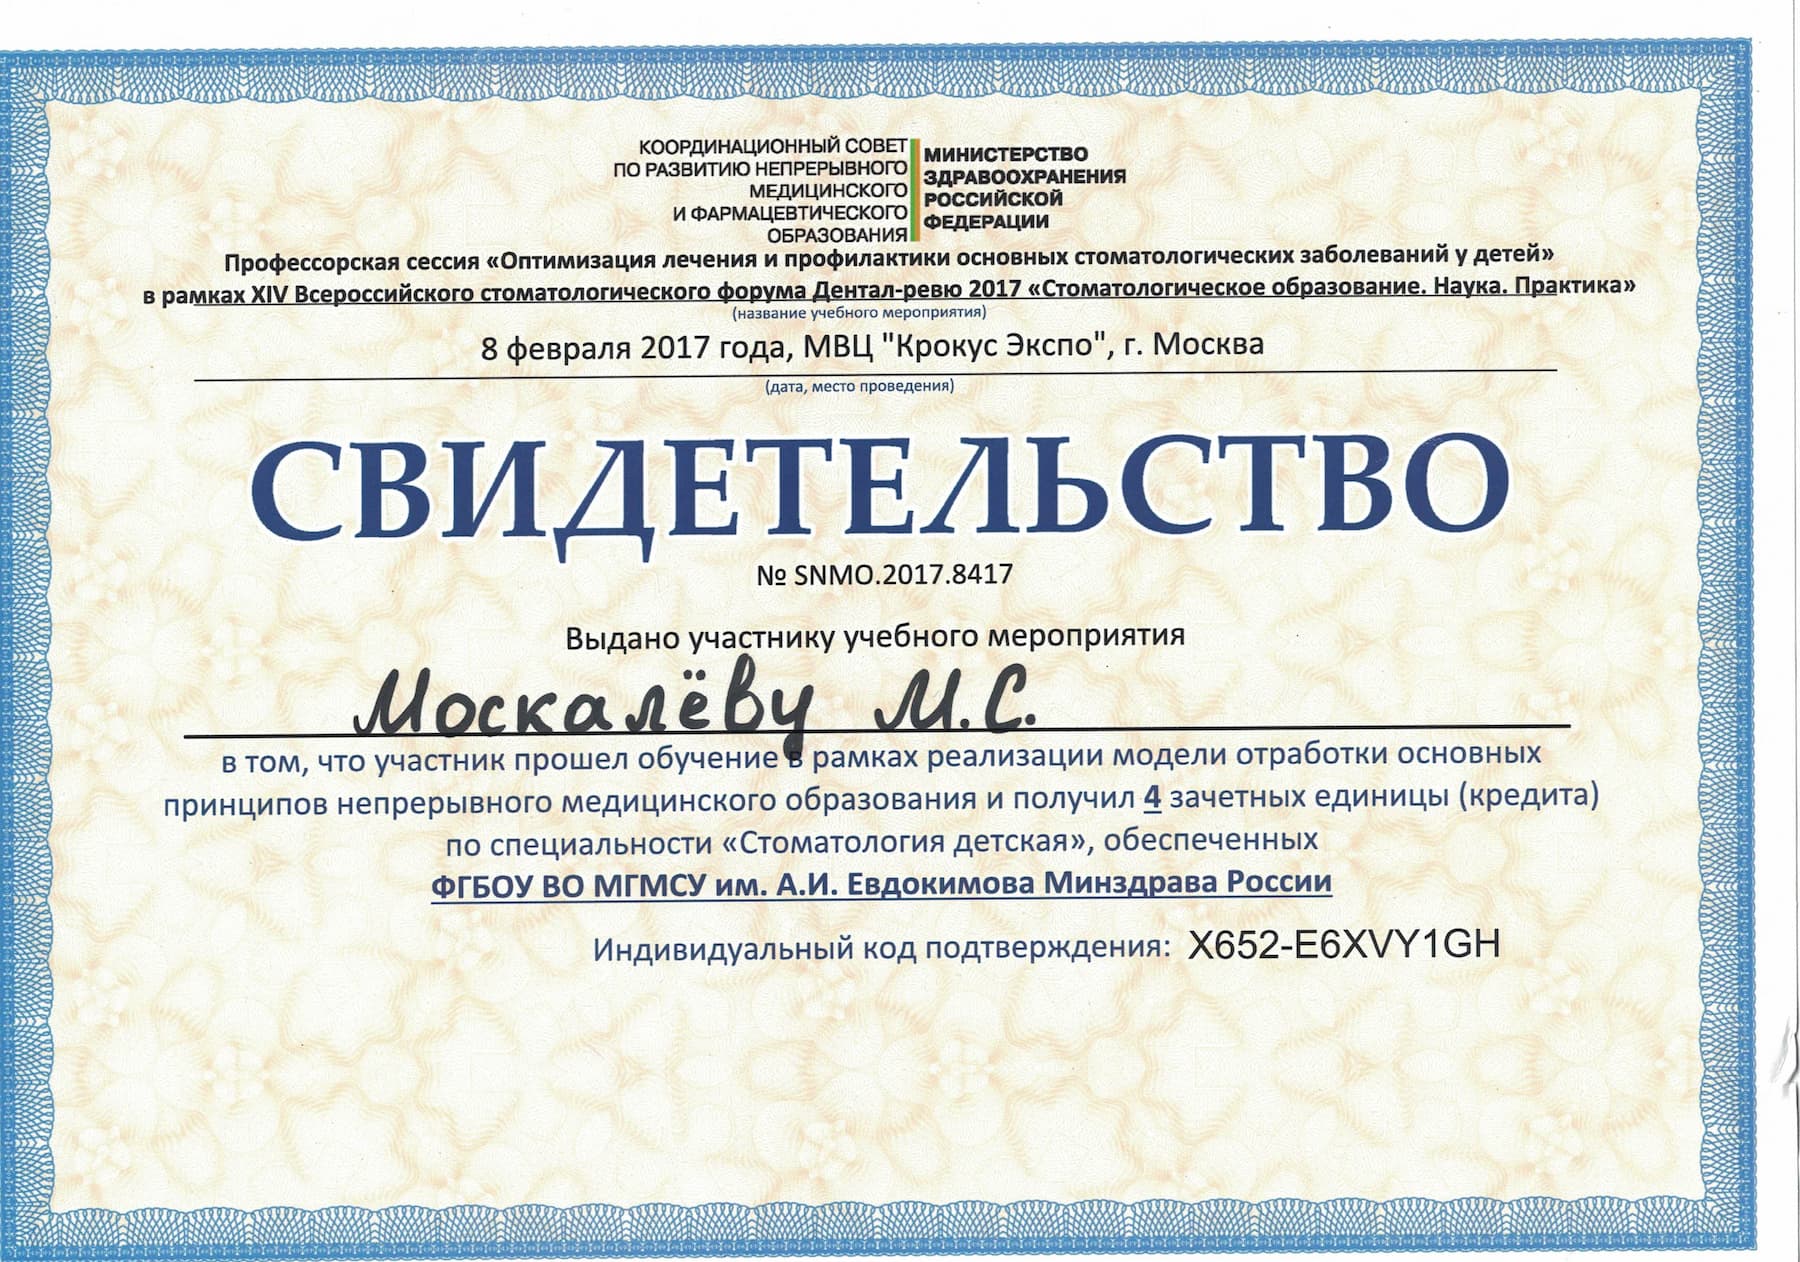 КООРДИНАЦИОННЫЙ СОВЕТ
ПО РАЗВИТИЮ НЕПРЕРЫВНОГО
МЕДИЦИНСКОГО
И ФАРМАЦЕВТИЧЕСКОГО
ОБРАЗОВАНИЯ
МИНИСТЕРСТВО
ЗДРАВООХРАНЕНИЯ
РОССИЙСКОЙ
ФЕДЕРАЦИИ
Профессорская сессия «Оптимизация лечения и профилактики основных стоматологических заболеваний у детей»
в рамках XIV Всероссийского стоматологического форума Дентал-ревю 2017 «Стоматологическое образование. Наука. Практика»
(название учебного мероприятия)
8 февраля 2017 года, МВЦ "Крокус Экспо", г. Москва
(дата, место проведения)
СВИДЕТЕЛЬСТВО
№ SNMO.2017.8417
Выдано участнику учебного мероприятия
Москалёву М.С.
в том, что участник прошел обучение в рамках реализации модели отработки основных
принципов непрерывного медицинского образования и получил 4 зачетных единицы (кредита)
по специальности «Стоматология детская», обеспеченных
ФГБОУ ВО МГМСУ им. А.И. Евдокимова Минздрава России
Индивидуальный код подтверждения: X652-E6XVY1GH